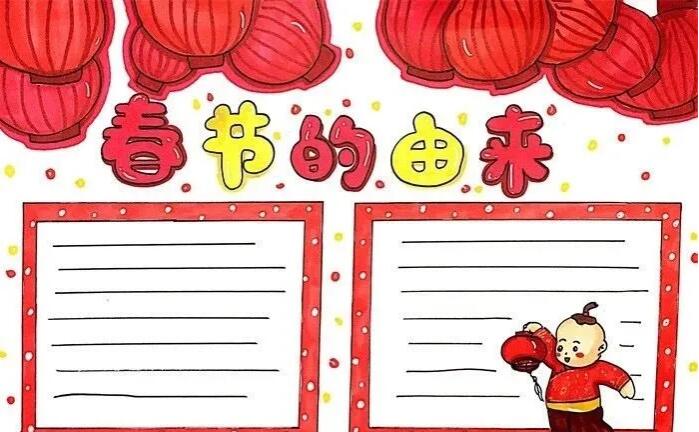 春节的由来